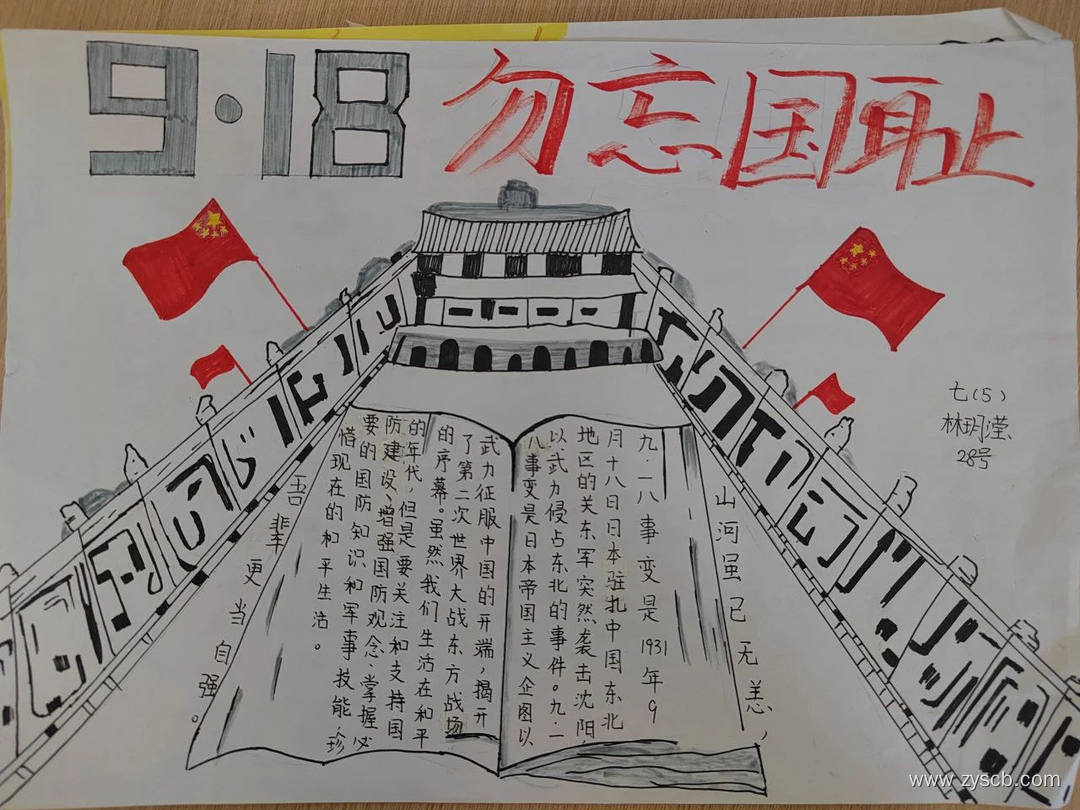 9·18 勿忘国耻
七(5)
林玥滢
28号
山河虽已无恙,
九·一八事变是1931年9
月十八日日本驻扎中国东北
地区的关东军突然袭击沈阳,
以武力侵占东北的事件。九·一
八事变是日本帝国主义企图以
武力征服中国的开端,揭开
了第二次世界大战东方战场
的序幕。虽然我们生活在和平
的年代,但是要关注和支持国
防建设、增强国防观念、掌握必
要的国防知识和军事技能,珍
惜现在的和平生活。
吾辈更当自强。
www.zyscb.com